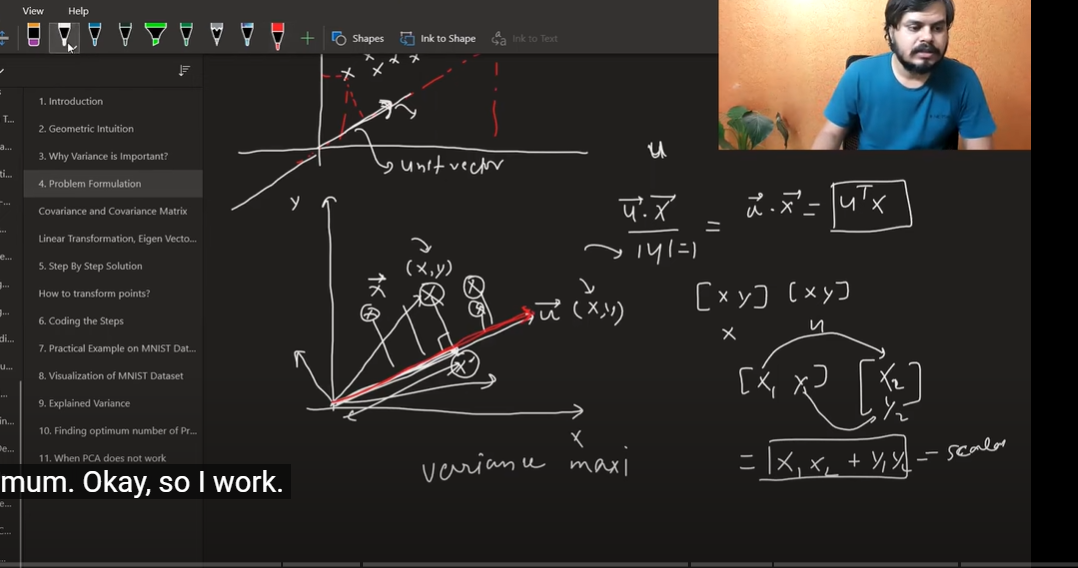 View Help
Shapes Ink to Shape Ink to Text
1. Introduction
2. Geometric Intuition
3. Why Variance is Important?
4. Problem Formulation
Covariance and Covariance Matrix
Linear Transformation, Eigen Vecto...
5. Step By Step Solution
How to transform points?
6. Coding the Steps
7. Practical Example on MNIST Dat...
8. Visualization of MNIST Dataset
9. Explained Variance
10. Finding optimum number of Pr...
11. When PCA does not work
unit vector
u
u⃗ · x⃗
|u| = 1
= u⃗ · x⃗ = uᵀx
y
(x,y)
x⃗
x
u⃗ (x,y)
x'
x
[x y] [x y]
x u
[x₁ x₁] [x₂
y₂]
= x₁ x₂ + y₁ y₂ = scalar
variance maxi
mum. Okay, so I work.